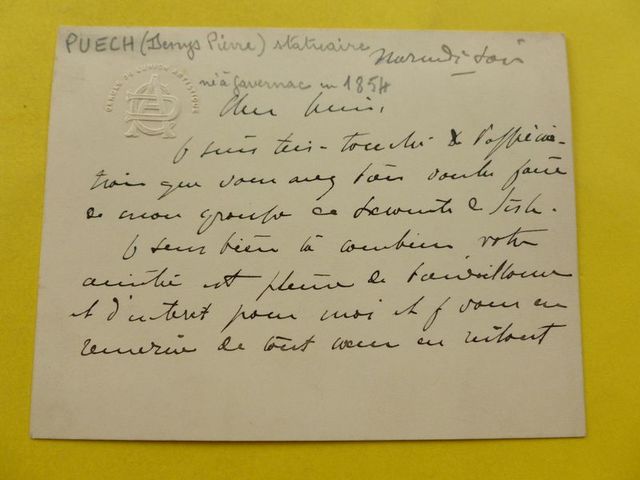 PUECH (Denys Pierre) statuaire
né à Gavernac en 1854
CERCLE DE L'UNION ARTISTIQUE
Mercredi soir
Cher Ami,
Je suis très touché de l'apprécia-
tion que vous avez bien voulu faire
de mon groupe de
Je sens bien là combien votre
amitié est pleine de bienveillance
et d'interet pour moi et je vous en
remercie de tout cœur en